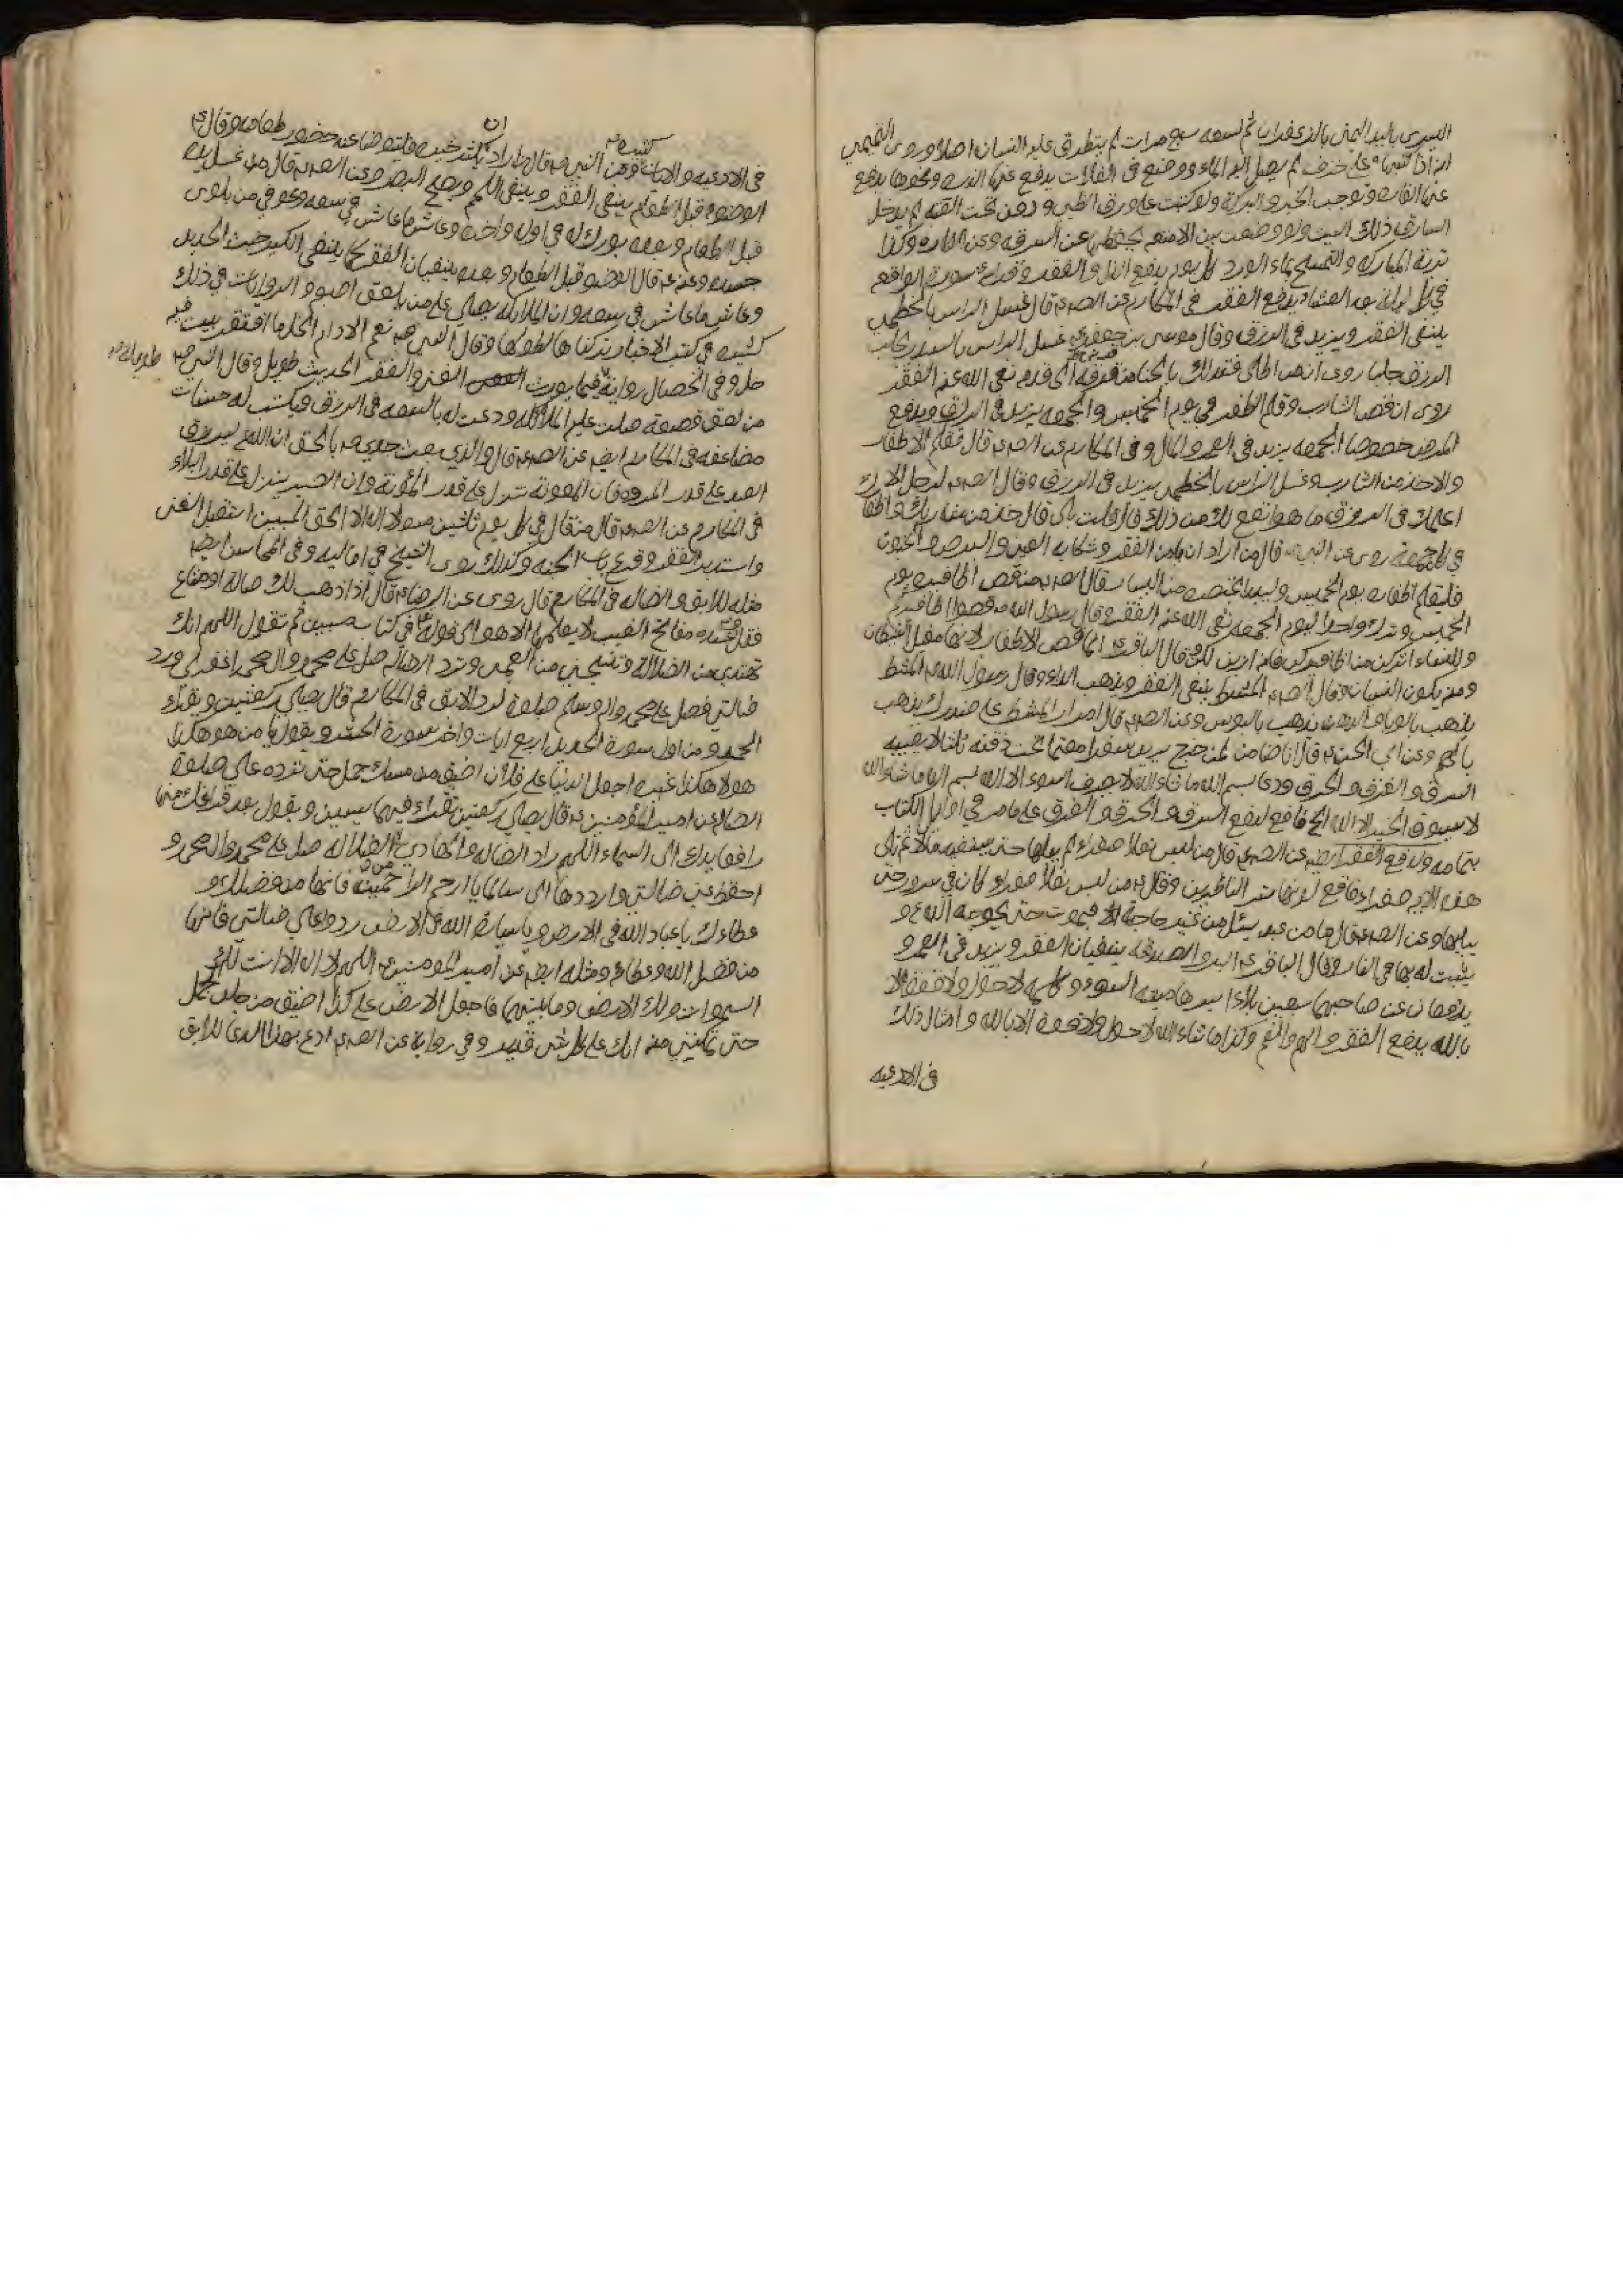 اليسرى باليد اليمنى بالزعفران ثم لسعه سبع مرات لم يتطرق عليه النسيان اصلا وروى التميمي
انه اذا كتبها على خزف لم يصل اليه الماء ووضع في الغلات يدفع عنها وغيرها يدفع
عنها وتوجب الخير والبركة ولو كتبت على ورق الظبي ودفن تحت لم يدخل
السارق ذلك البيت ولو وضعت بين الامتعه يحفظها عن السرقه وعن المكاره وكذا
تربة المباركه والتمسح بماء الورد كل يوم يدفع الذل والفقر وقراءة سورة الواقعه
في كل ليلة بعد العشاء يدفع الفقر في المكارم عن الصم قال غسل الراس بالخطمي
ينفى الفقر ويزيد في الرزق وقال موسى بن جعفر غسل الراس بالسدر يجلب
الرزق جلبا روى انه من اطلى فتدلك بالحنا من قرنه الى قدمه نفى الله عنه الفقر
روى ان قص الشارب وقلم الظفر في يوم الخميس والجمعه يزيد في الرزق ويدفع
المرض خصوصا الجمعه يزيد في العمر والمال وفي المكارم عن الصم قال تقليم الاظفار
والاخذ من الشارب وغسل الراس بالخطمي يزيد في الرزق وقال الصم لرجل الا
اعلمك في الرزق ما هو انفع لك من ذلك قال قلت بلى قال خذ من شاربك واظفارك
في كل جمعة روى عن النبي قال من اراد ان يامن الفقر وشكاية العين والبرص والجنون
فليقلم اظفاره يوم الخميس وليبدا بخنصره من اليسار وقال الصم من قص اظافيره يوم
الخميس وترك واحدا ليوم الجمعه نفى الله عنه الفقر وقال رسول الله قصوا اظافيركم
وللنساء اتركن من اظافيركن فانه ازين لكن وقال الباقر انما قص الاظفار لانها مقيل الشيطان
ومنه يكون النسيان وقال الصم المشط ينفى الفقر ويذهب الداء وقال رسول الله المشط
يذهب بالوباء والدهن يذهب بالبوس وعن الصم قال امرار المشط على صدرك يذهب
بالهم وعن ابي الحسن قال انا ضامن لمن خرج يريد سفرا معتما تحت ذقنه ثلثا لا يصيبه
السرق والغرق والحرق ودعاء بسم الله ما شاء الله لا يصرف السوء الا الله بسم الله ما شاء الله
لا يسوق الخير الا الله الخ نافع لدفع السرق والحرق والغرق على ما مر في اوائل الكتاب
بتمامه ولدفع الفقر ايضا عن الصم قال من لبس نعلا صفراء لم يبلها حتى يستفيد مالا ثم تلى
هذه الاية صفراء فاقع لونها تسر الناظرين وقال من لبس نعلا صفراء كان في سرور حتى
يبليها وعن الصم قال ما من عبد يسئل من غير حاجة الا فيموت حتى يحوجه الله و
يثبت له بها في النار وقال الباقر البر والصدقه ينفيان الفقر ويزيد في العمر و
يدفعان عن صاحبهما سبعين بلاء ميته السوء وكلمه لا حول ولا قوة الا
بالله يدفع الفقر والهم والغم وكذا ما شاء الله لا حول ولا قوة الا بالله وامثال ذلك
في الادعيه
في الادعيه والايات كثيره وعن النبي قال من اراد ان يكثر خيره فليتوضا عند حضور طعامه وقال
الوضوء قبل الطعام ينفى الفقر وينفى اللمم ويصح البصر وعن الصم قال من غسل يده
قبل الطعام وبعده بورك له في اوله واخره وعاش ما عاش في سعه وعوفي من بلوى
جسده وعنه قال الوضوء قبل الطعام وبعده ينفيان الفقر كما ينفى الكير خبث الحديد
وعاش ما عاش في سعه وان الملائكه يصلى على من يلعق اصبعه والروايات في ذلك
كثيره في كتب الاخبار تركناها لطولها وقال النبي نعم الادام الخل ما افتقر بيت فيه
خل وفي الخصال رواية فيما يورث الغنى والفقر الحديث طويل وقال النبي
من لعق قصعه صلت عليه الملائكه ودعت له بالسعه في الرزق ويكتب له حسنات
مضاعفه في المكارم ايضا عن الصم قال والذي بعث جدي بالحق ان الله ليرزق
العبد على قدر المروة فان المعونة تنزل على قدر المؤنة وان الصبر ينزل على قدر البلاء
في المكارم عن الصم قال من قال في كل يوم ثلثين مره لا اله الا الله الحق المبين استقبل الغنى
واستدبر الفقر وقرع باب الجنه وكذلك روى الشيخ في اماليه وفي المحاسن ايضا
مثله للابق والضاله في المكارم قال روى عن الرضا قال اذا ذهب لك ضالة او متاع
فقل وعنده مفاتح الغيب لا يعلمها الا هو الى قوله في كتاب مبين ثم تقول اللهم انك
تهدي من الضلالة وتنجي من العمى وترد الضاله صل على محمد وال محمد واغفر لي ورد
ضالتي فصل على محمد واله وسلم صلوة لرد الابق في المكارم قال يصلى ركعتين ويقراء
الحمد ومن اول سورة الحديد اربع ايات واخر سورة الحشر ويقول يا من هو هكذا
ولا هكذا غيره اجعل الدنيا على فلان اضيق من مسك جمل حتى ترده علي صلوة
الضاله عن امير المؤمنين قال يصلى ركعتين تقراء فيهما يسين ويقول بعد فراغك منهما
رافعا يدك الى السماء اللهم راد الضاله والهادي من الضلاله صل على محمد وال محمد و
احفظ علي ضالتي وارددها الى سالما يا ارحم الراحمين فانها من فضلك و
عطائك يا عباد الله في الارض ويا سيارة الله في الارض ردوا علي ضالتي فانها
من فضل الله وعطائه ومثله ايضا عن امير المومنين اللهم لا اله الا انت لك
السموات ولك الارض وما بينهما فاجعل الارض على كذا اضيق من جلد جمل
حتى تمكنني منه انك على كل شي قدير وفي رواية عن الصم ادع بهذا الدعاء للابق